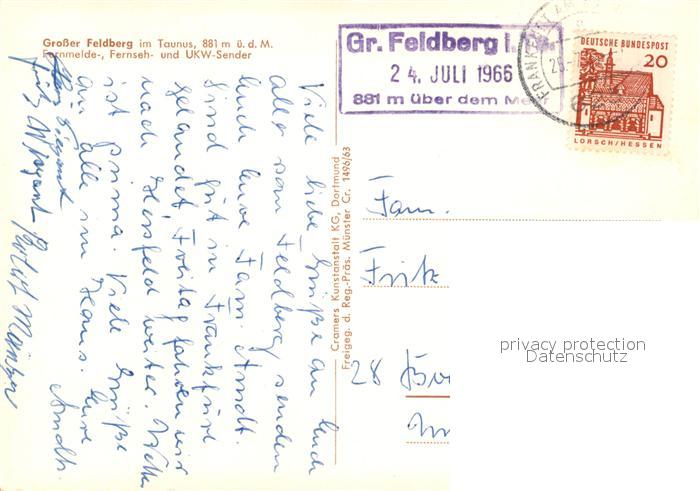 Großer Feldberg im Taunus, 881 m ü. d. M.
Fernmelde-, Fernseh- und UKW-Sender
Gr. Feldberg i.
24. JULI 1966
881 m über dem Meer
FRANKFURT AM
DEUTSCHE BUNDESPOST
20
LORSCH/HESSEN
Viele liebe Grüße an Euch
alle vom Feldberg senden
Euch Eure Fam. Arndt.
Sind gut in Frankfurt
gelandet, Freitag fahren wir
nach Hersfeld weiter. Wetter
ist prima. Viele Grüße
an alle im Haus. Eure
Arndts.
Fritz Wiegant
Cramers Kunstanstalt KG, Dortmund
Freigeg. d. Reg.-Präs. Münster Cr. 1496/63
Fam.
Fritz
28
privacy protection
Datenschutz